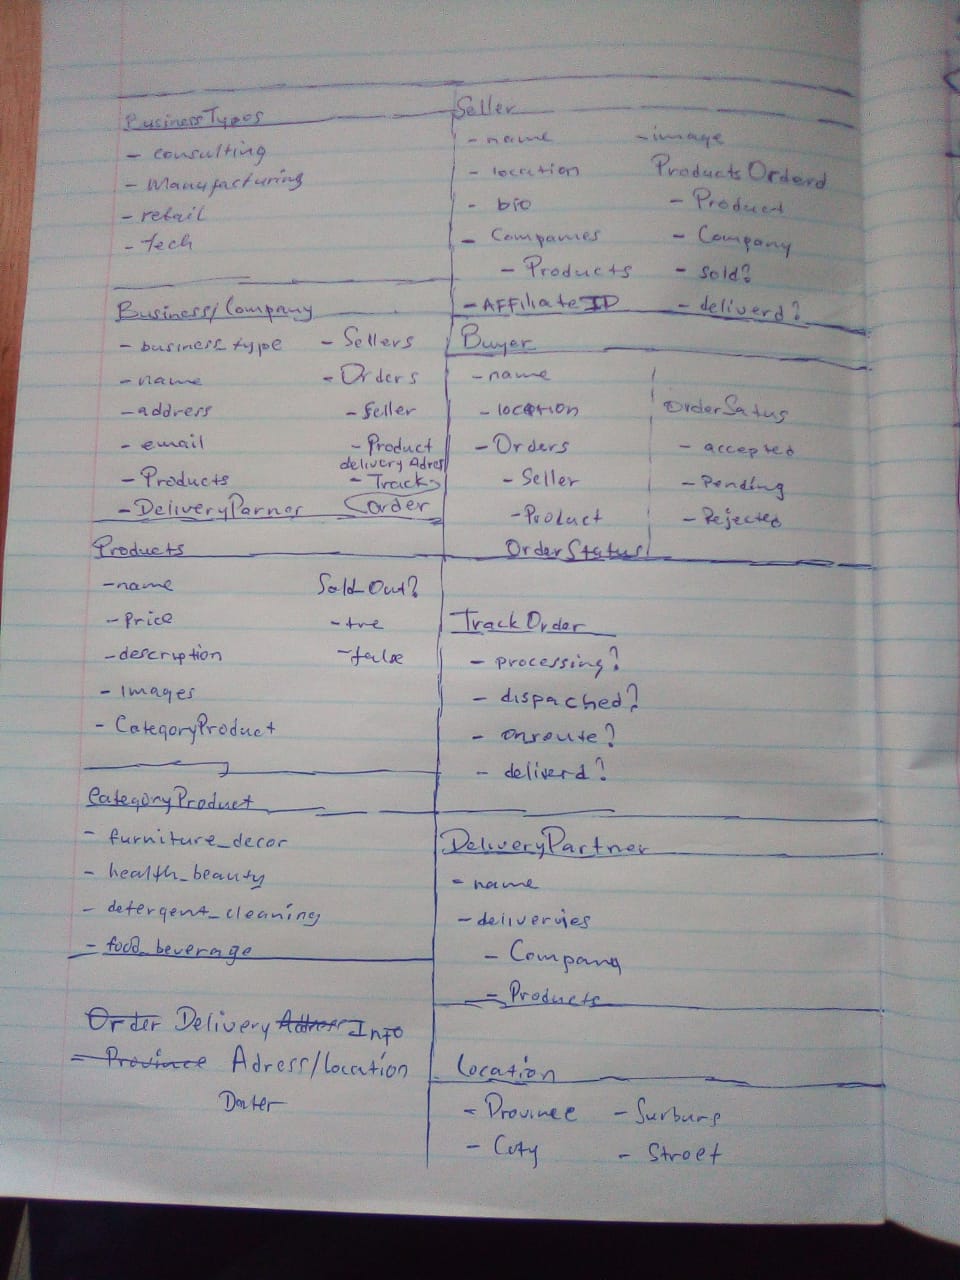 BusinessTypes
- consulting
- Manufacturing
- retail
- tech
Business/Company
- business_type
- name
- address
- email
- Products
- DeliveryParner
- Sellers
- Orders
- Seller
- Product
delivery Adres
- Track
Order
Products
- name
- Price
- description
- Images
- CategoryProduct
Sold Out?
- tre
- false
CategoryProduct
- furniture_decor
- health_beauty
- detergent_cleaning
- food_beverage
Order Delivery Adress Info
- Province Adress/location
Seller
- name
- location
- bio
- Companies
- Products
- AffiliateID
- image
ProductsOrderd
- Product
- Company
- sold?
- deliverd?
Buyer
- name
- location
- Orders
- Seller
- Product
OrderStatus
OrderSatus
- accepted
- Pending
- Rejected
TrackOrder
- processing?
- dispached?
- onroute?
- deliverd?
DeliveryPartner
- name
- deliveries
- Company
- Products
Location
- Province
- City
- Surburs
- Street